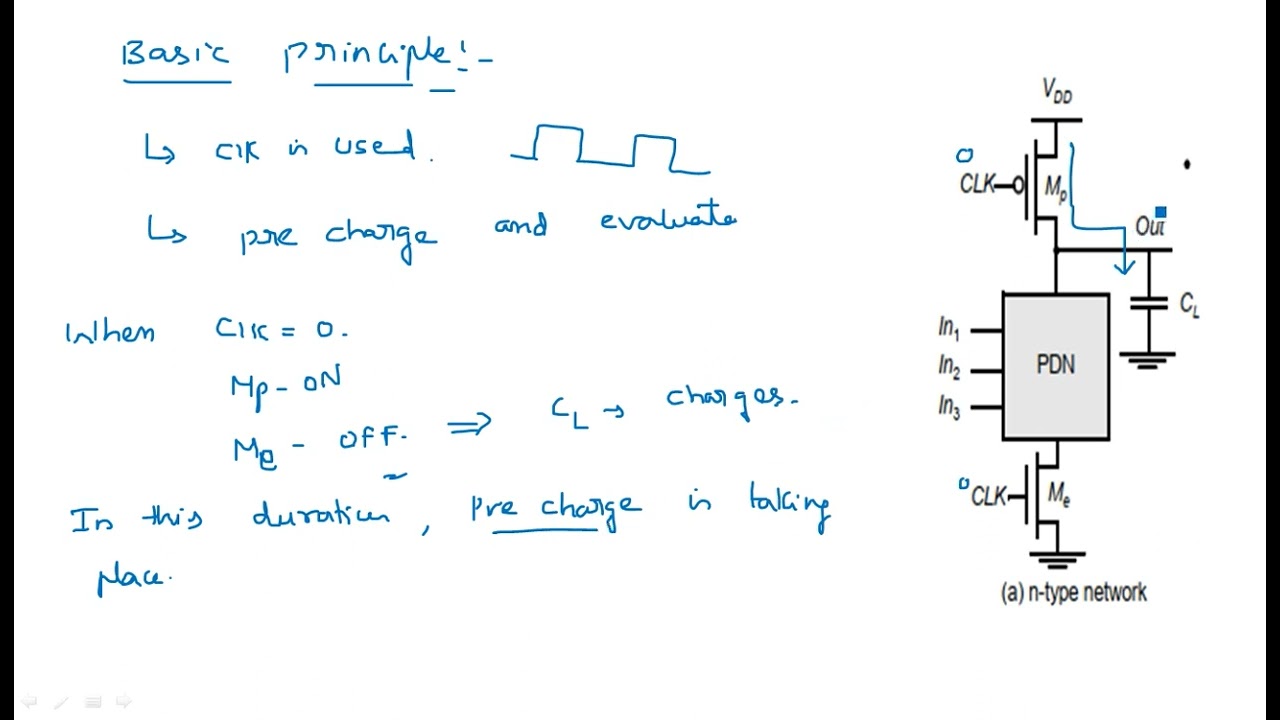 Basic principle:-
↳ clk is used.
↳ pre charge and evaluate
When Clk = 0.
Mp - ON
Me - OFF. ⇒ CL → charges.
In this duration, Pre charge is taking
place.
VDD
0
CLK
Mp
Out
CL
In1
In2
In3
PDN
0
CLK
Me
(a) n-type network